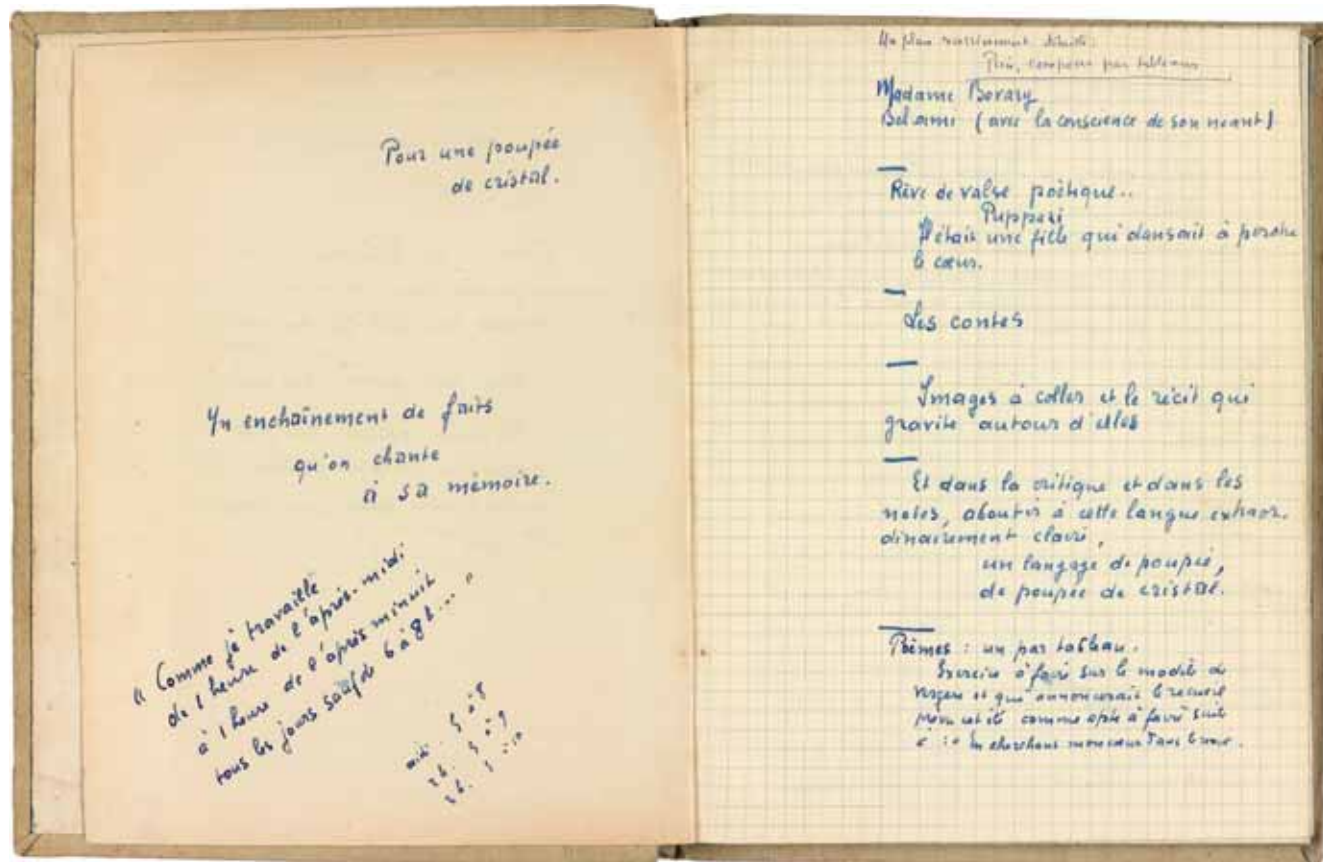 Pour une poupée
de cristal.
Un enchaînement de faits
qu'on chante
à sa mémoire.
"Comme je travaille
de 1 heure de l'après-midi
à 1 heure de l'après minuit
tous les jours sauf de 6 à 8 h..."
midi. 5 à 8
2 h. 5 à 9
2 h. 5 à 10
Un plan
Puis, composer par tableaux
Madame Bovary
Bel ami (avec la conscience de son néant)
Rêve de valse poétique..
Il était une fille qui dansait à perdre
le cœur.
Les contes
Images à coller et le récit qui
gravite autour d'elles
Et dans la critique et dans les
notes, aboutir à cette langue extraor-
dinairement claire,
un langage de poupée,
de poupée de cristal.
Poèmes : un par tableau.
Exercice à faire sur le modèle de
et qui annoncerait le recueil
comme apte à faire suite
à : en cherchant mon cœur dans le noir.